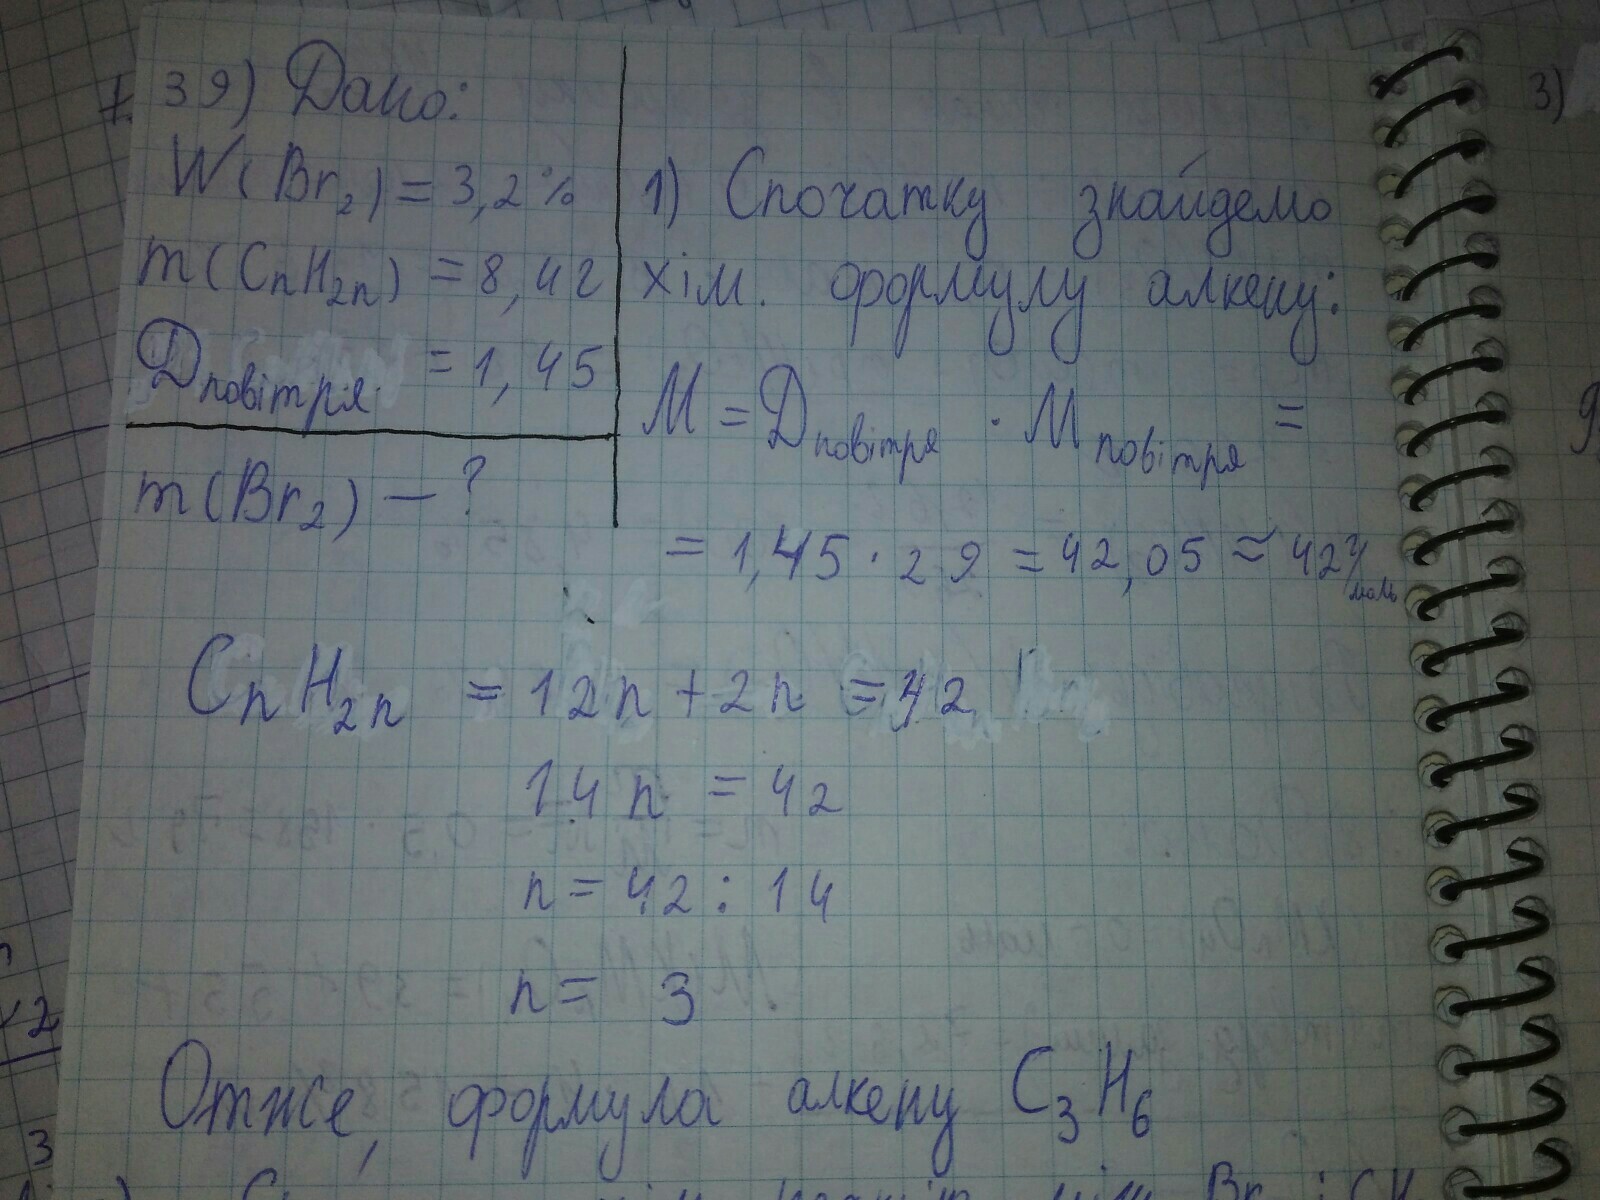 39) Дано:
W(Br₂) = 3,2%
m(CnH2n) = 8,4г
Dповітря. = 1,45
m(Br₂) — ?
1) Спочатку знайдемо
хім. формулу алкену:
M = Dповітря · Mповітря =
= 1,45 · 29 = 42,05 ≈ 42г/моль
CnH2n = 12n + 2n = 42
14n = 42
n = 42 : 14
n = 3
Отже, формула алкену C₃H₆
3)